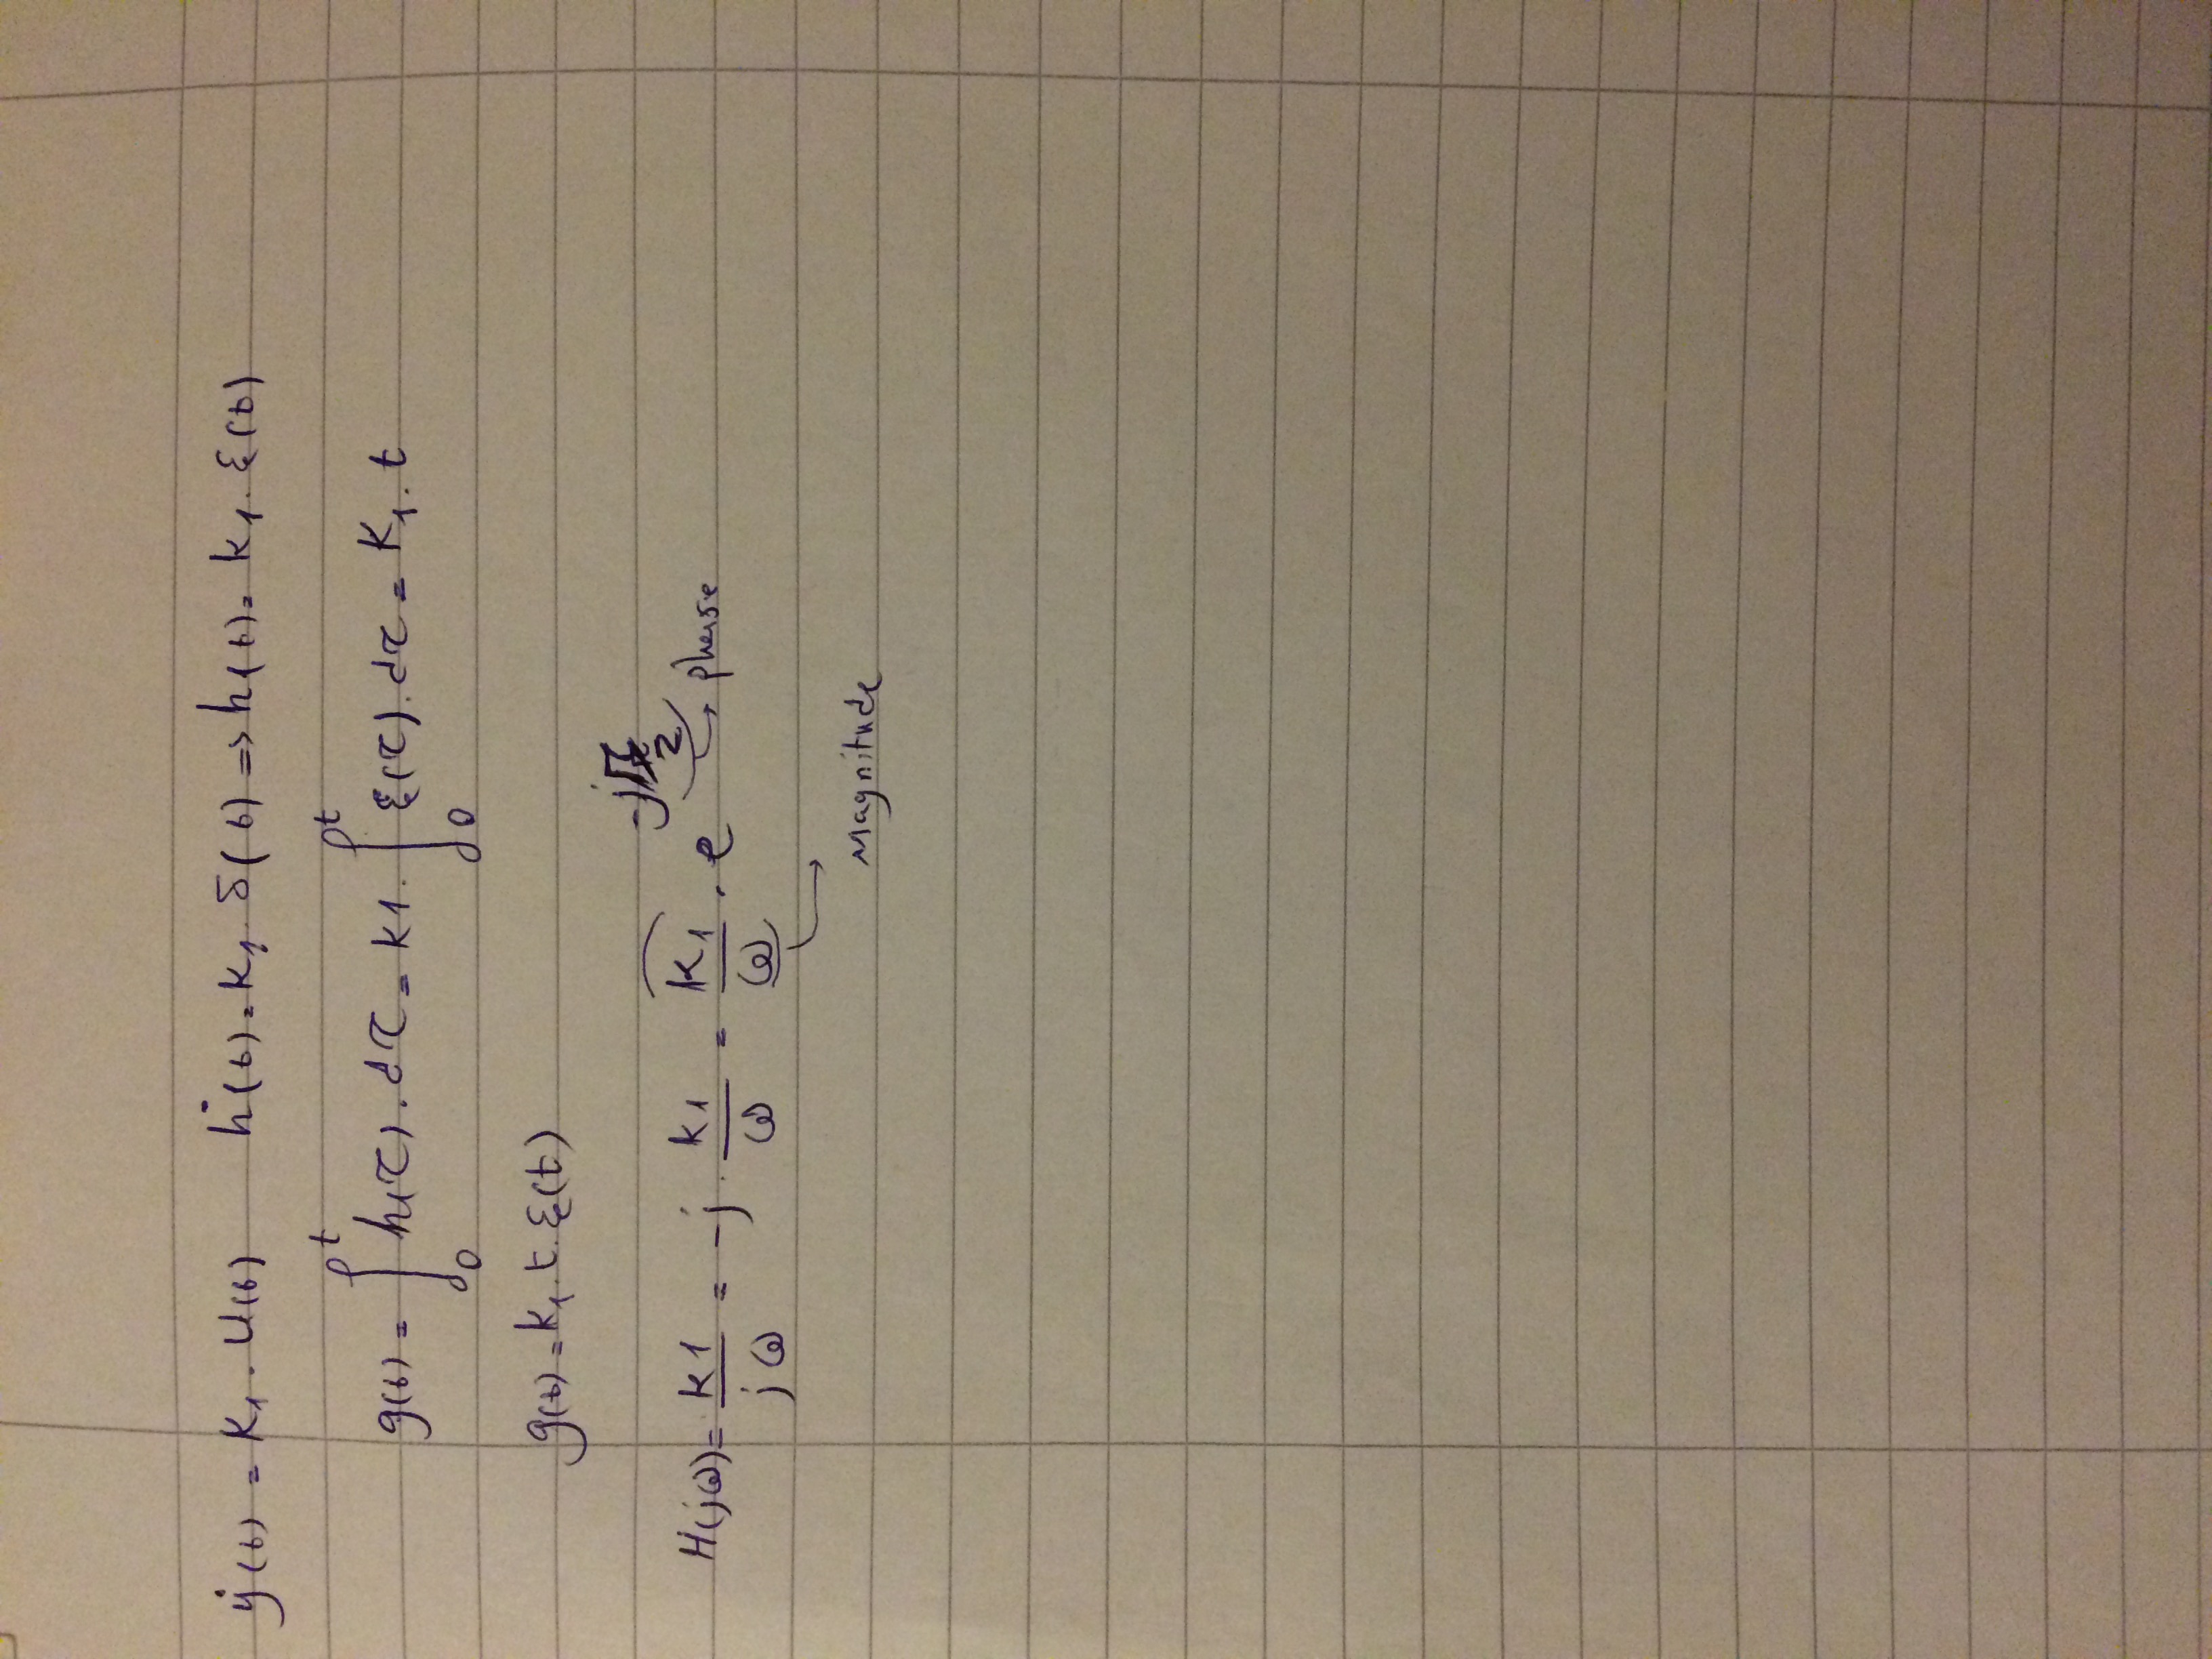 ẏ(t) = K₁ . U(t) ḣ(t) = K₁ . δ(t) => h(t) = K₁ . ε(t)
g(t) = ∫₀ᵗ h(τ) . dτ = K1 . ∫₀ᵗ ε(τ) . dτ = K₁ . t
g(t) = K₁ . t . ε(t)
H(jω) = K1/jω = -j . K1/ω = K₁/ω . e^(-jπ/2) → phase
Magnitude